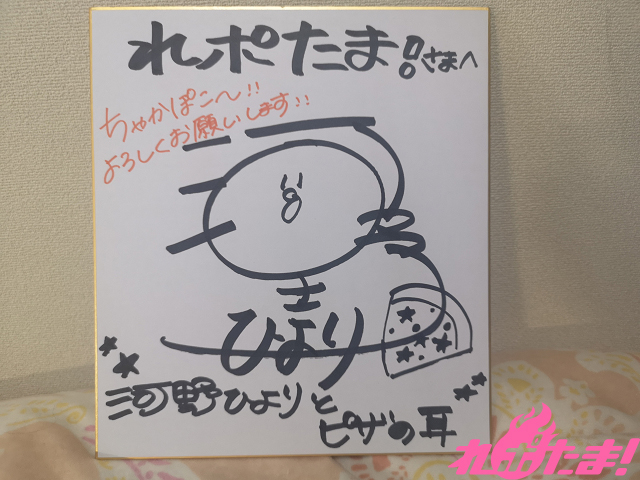 れポたま!さまへ
ちゃかぽこ〜!!
よろしくお願いします!!
ひより
河野ひよりと
ピザの耳
れポたま!